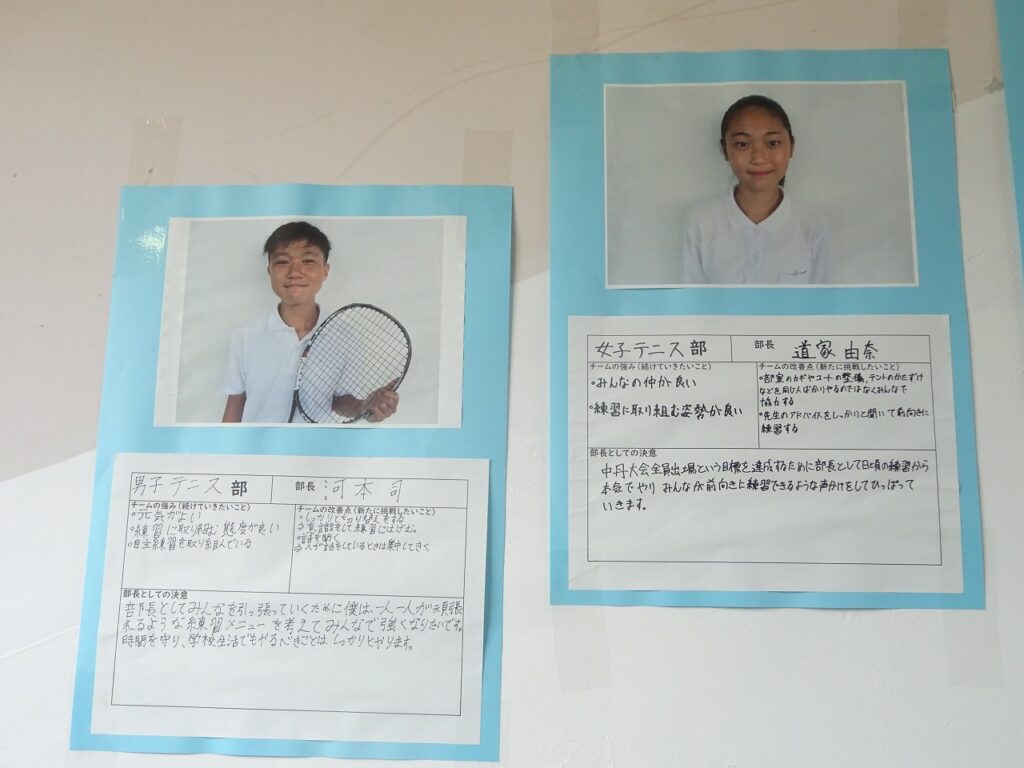 男子テニス部
部長 河本 司
チームの強み(続けていきたいこと)
・元気がよい
・練習に取り組む態度が良い
・自主練習を取り組んでいる
チームの改善点(新たに挑戦したいこと)
・しっかりと切り替えをする
練習にはげむ。
・話を聞く
⇒人が話をしているときは集中してきく
部長としての決意
部長としてみんなを引っ張っていくために僕は、一人一人が頑張
れるような練習メニューを考えてみんなで強くなりたいです。
時間を守り、学校生活でもやるべきことはしっかりとやります。
女子テニス部
部長 道家 由奈
チームの強み(続けていきたいこと)
・みんなの仲が良い
・練習に取り組む姿勢が良い
チームの改善点(新たに挑戦したいこと)
・部室のカギやコートの整備、テントのかたずけ
などを同じ人ばかりやるのではなくみんなで
協力する
・先生のアドバイスをしっかりと聞いて前向きに
練習する
部長としての決意
中丹大会全員出場という目標を達成するために部長として日頃の練習から
本気でやり みんなが前向きに練習できるような声かけをしてひっぱって
いきます。